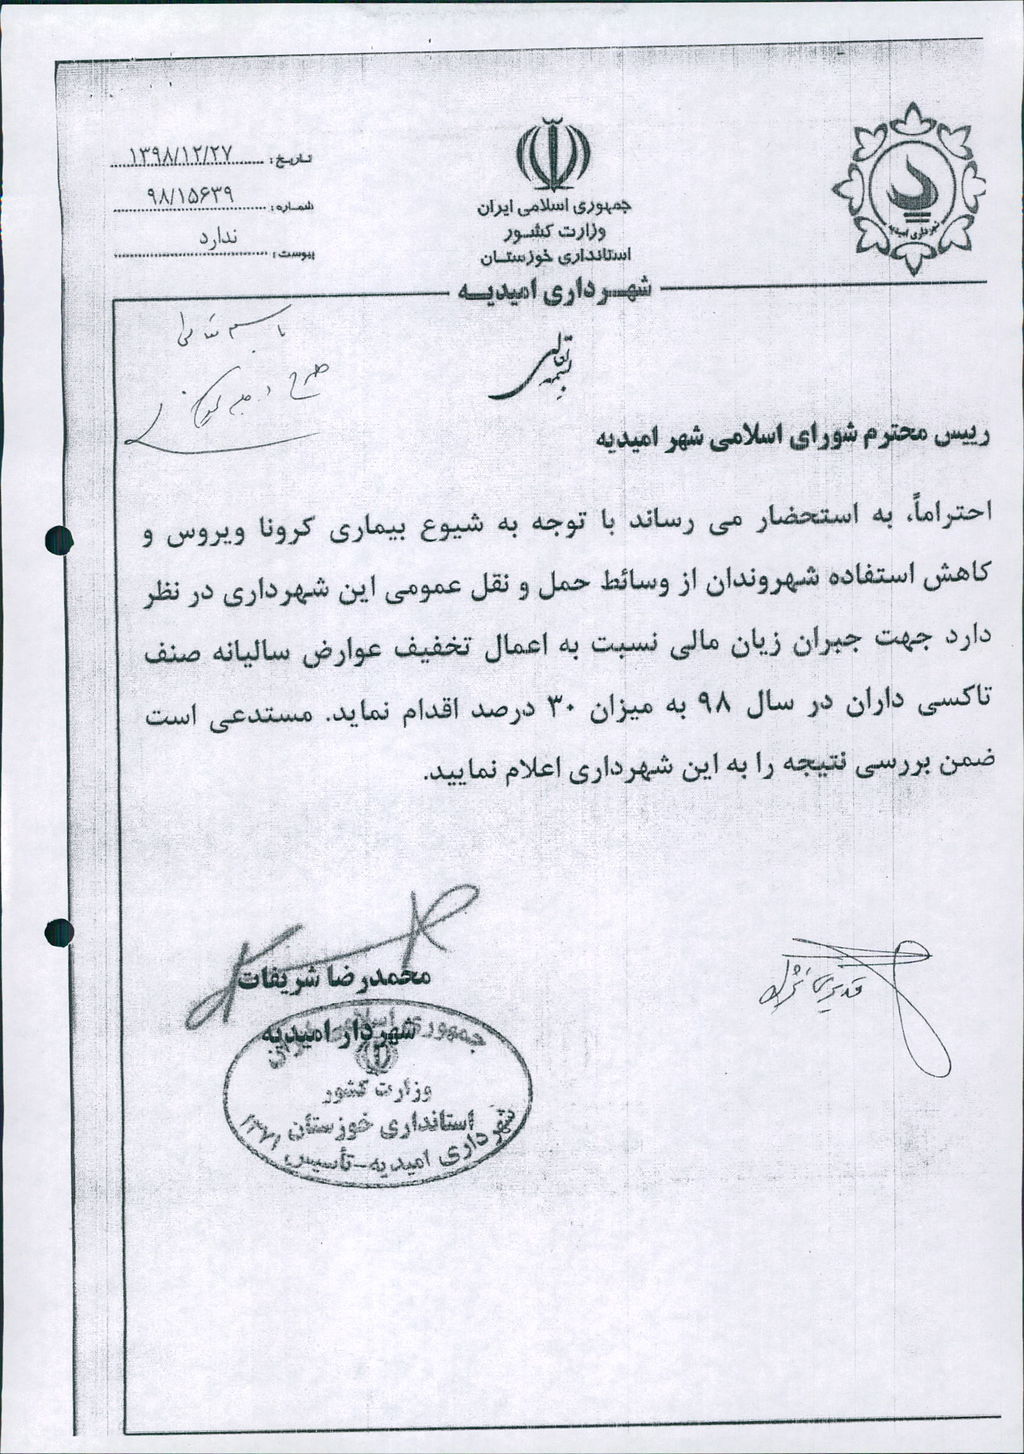 جمهوری اسلامی ایران
وزارت کشور
استانداری خوزستان
شهرداری امیدیه
تاریخ: ۱۳۹۸/۱۲/۲۷
شماره: ۹۸/۱۵۶۳۹
پیوست: ندارد
شهرداری امیدیه
بسمه تعالی
باسمه تعالی
طرح در
رییس محترم شورای اسلامی شهر امیدیه
احتراماً، به استحضار می رساند با توجه به شیوع بیماری کرونا ویروس و
کاهش استفاده شهروندان از وسائط حمل و نقل عمومی این شهرداری در نظر
دارد جهت جبران زیان مالی نسبت به اعمال تخفیف عوارض سالیانه صنف
تاکسی داران در سال ۹۸ به میزان ۳۰ درصد اقدام نماید. مستدعی است
ضمن بررسی نتیجه را به این شهرداری اعلام نمایید.
محمدرضا شریفات
شهردار امیدیه
جمهوری اسلامی ایران
وزارت کشور
استانداری خوزستان
شهرداری امیدیه-تأسیس ۱۳۷۱